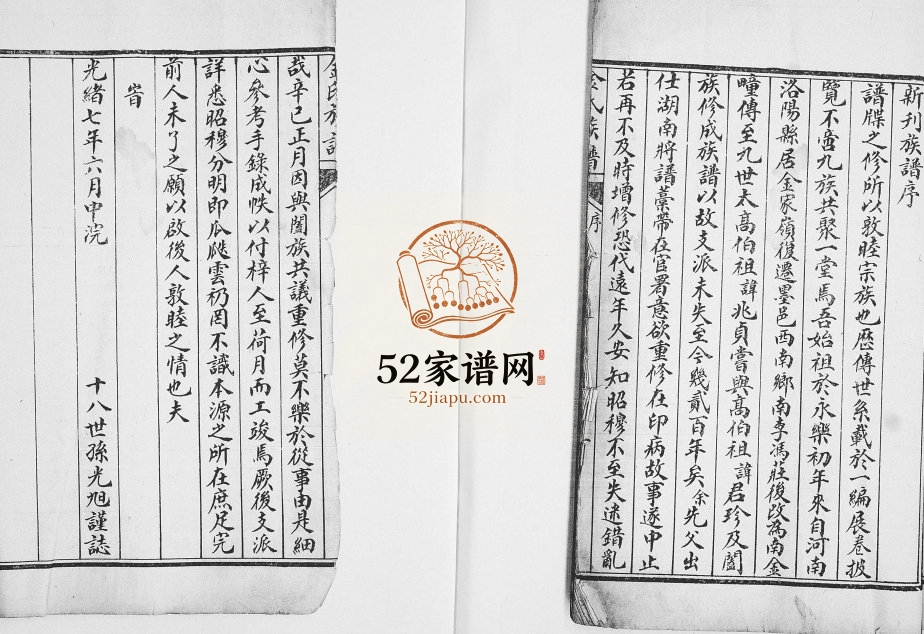 新刊族譜序
譜牒之修所以敦睦宗族也歷傳世系載於一編展卷披
覽不啻九族共聚一堂焉吾始祖於永樂初年來自河南
洛陽縣居金家嶺復遷墨邑西南鄉南李馮莊後改為南金
疃傳至九世太高伯祖諱兆貞嘗與高伯祖諱君珍及闔
族修成族譜以故支派未失至今幾貳百年矣余先父出
仕湖南將譜藁帶在官署意欲重修在印病故事遂中止
若再不及時增修恐代遠年久安知昭穆不至失迷錯亂
金氏族譜 序
金氏族譜
哉辛已正月因與闔族共議重修莫不樂於從事由是細
心參考手錄成帙以付梓人至荷月而工竣焉厥後支派
詳悉昭穆分明即瓜瓞雲礽罔不識本源之所在庶足完
前人未了之願以啟後人敦睦之情也夫
旹
光緒七年六月中浣
十八世孫光旭謹誌
52家谱网
52jiapu.com